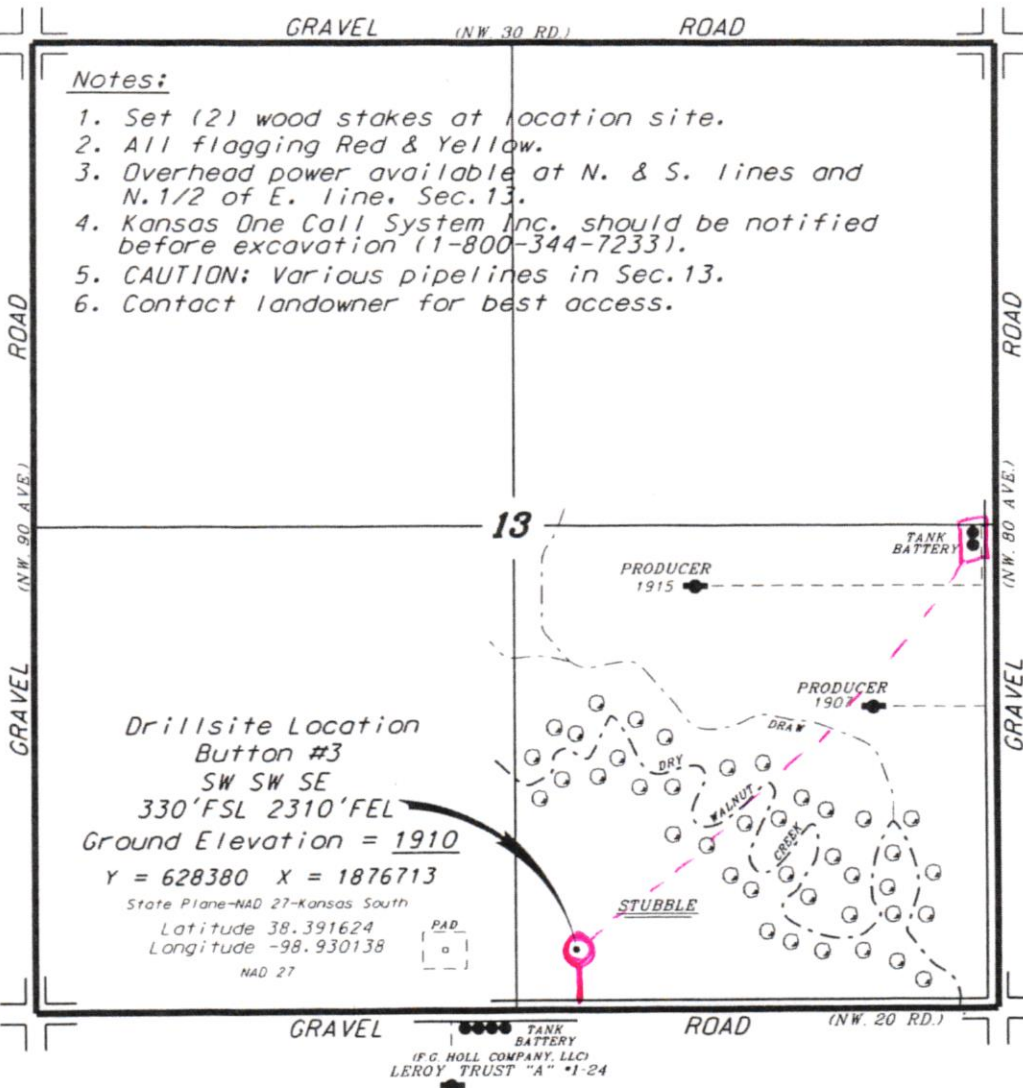 GRAVEL (NW. 30 RD.) ROAD
Notes:
1. Set (2) wood stakes at location site.
2. All flagging Red & Yellow.
3. Overhead power available at N. & S. lines and
N. 1/2 of E. line, Sec. 13.
4. Kansas One Call System Inc. should be notified
before excavation (1-800-344-7233).
5. CAUTION: Various pipelines in Sec. 13.
6. Contact landowner for best access.
ROAD
(NW. 90 AVE.)
GRAVEL
ROAD
(NW. 80 AVE.)
GRAVEL
13
TANK
BATTERY
PRODUCER
1915
PRODUCER
1907
DRAW
DRY
WALNUT
CREEK
STUBBLE
Drillsite Location
Button #3
SW SW SE
330'FSL 2310'FEL
Ground Elevation = 1910
Y = 628380 X = 1876713
State Plane-NAD 27-Kansas South
Latitude 38.391624
Longitude -98.930138
NAD 27
PAD
GRAVEL ROAD (NW. 20 RD.)
TANK
BATTERY
(F.G. HOLL COMPANY, LLC)
LEROY TRUST "A" #1-24